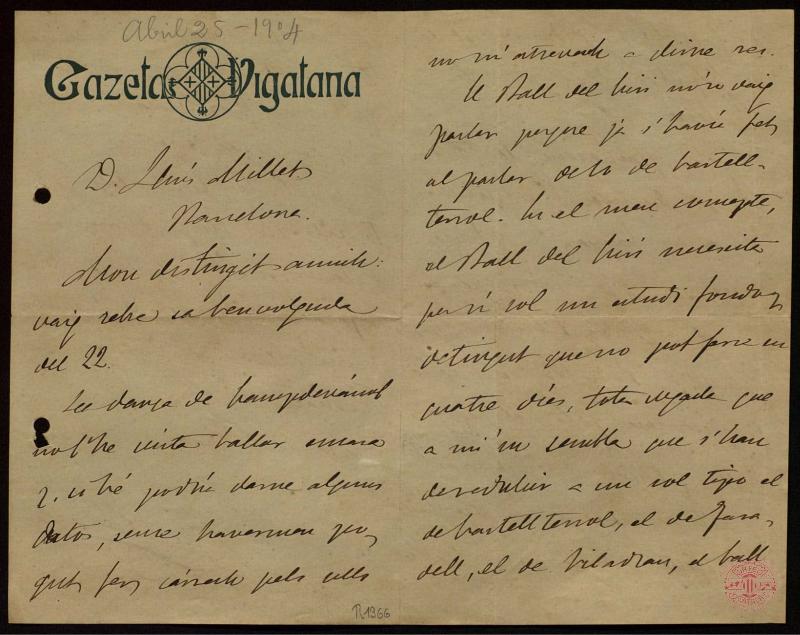 Abril 25-1904
Gazeta Vigatana
D. Lluís Millet
Barcelona.
Mon distingit amich:
vaig rebre sa benvolguda
del 22.
La dança de Campdevánol
no l'he vista ballar encara
y, si bé podría darne alguns
datos, sense havermen po-
gut fer cárrech pels ulls
no m'atrevech a dirne res.
El Ball del Ciri no'n vaig
parlar perque ja s'havía fet
al parlar de lo de Castell-
tersol. En el meu concepte,
el Ball del Ciri necesita
per sí sol un estudi fondo y
detingut que no pot ferse en
cuatre díes, tota vegada que
a mi'm sembla que s'han
de reduhir a un sol tipo el
de Castelltersol, el de Tara-
dell, el de Viladrau, el ball
R.1366